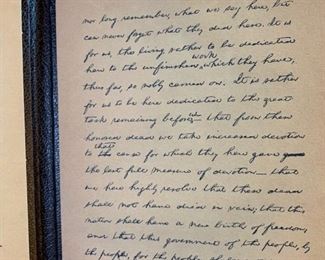 nor long remember, what we say here, but
can never forget what they did here. It is
for us, the living rather to be dedicated
work
here to the unfinished, which they have,
thus far, so nobly carried on. It is rather
for us to be here dedicated to the great
task remaining before us— that from these
honored dead we take increased devotion
that
to the cause for which they here gave gave
the last full measure of devotion— that
we here highly resolve that these dead
shall not have died in vain; that this
nation shall have a new birth of freedom;
and that this government of the people, by
the people, for the people, shall